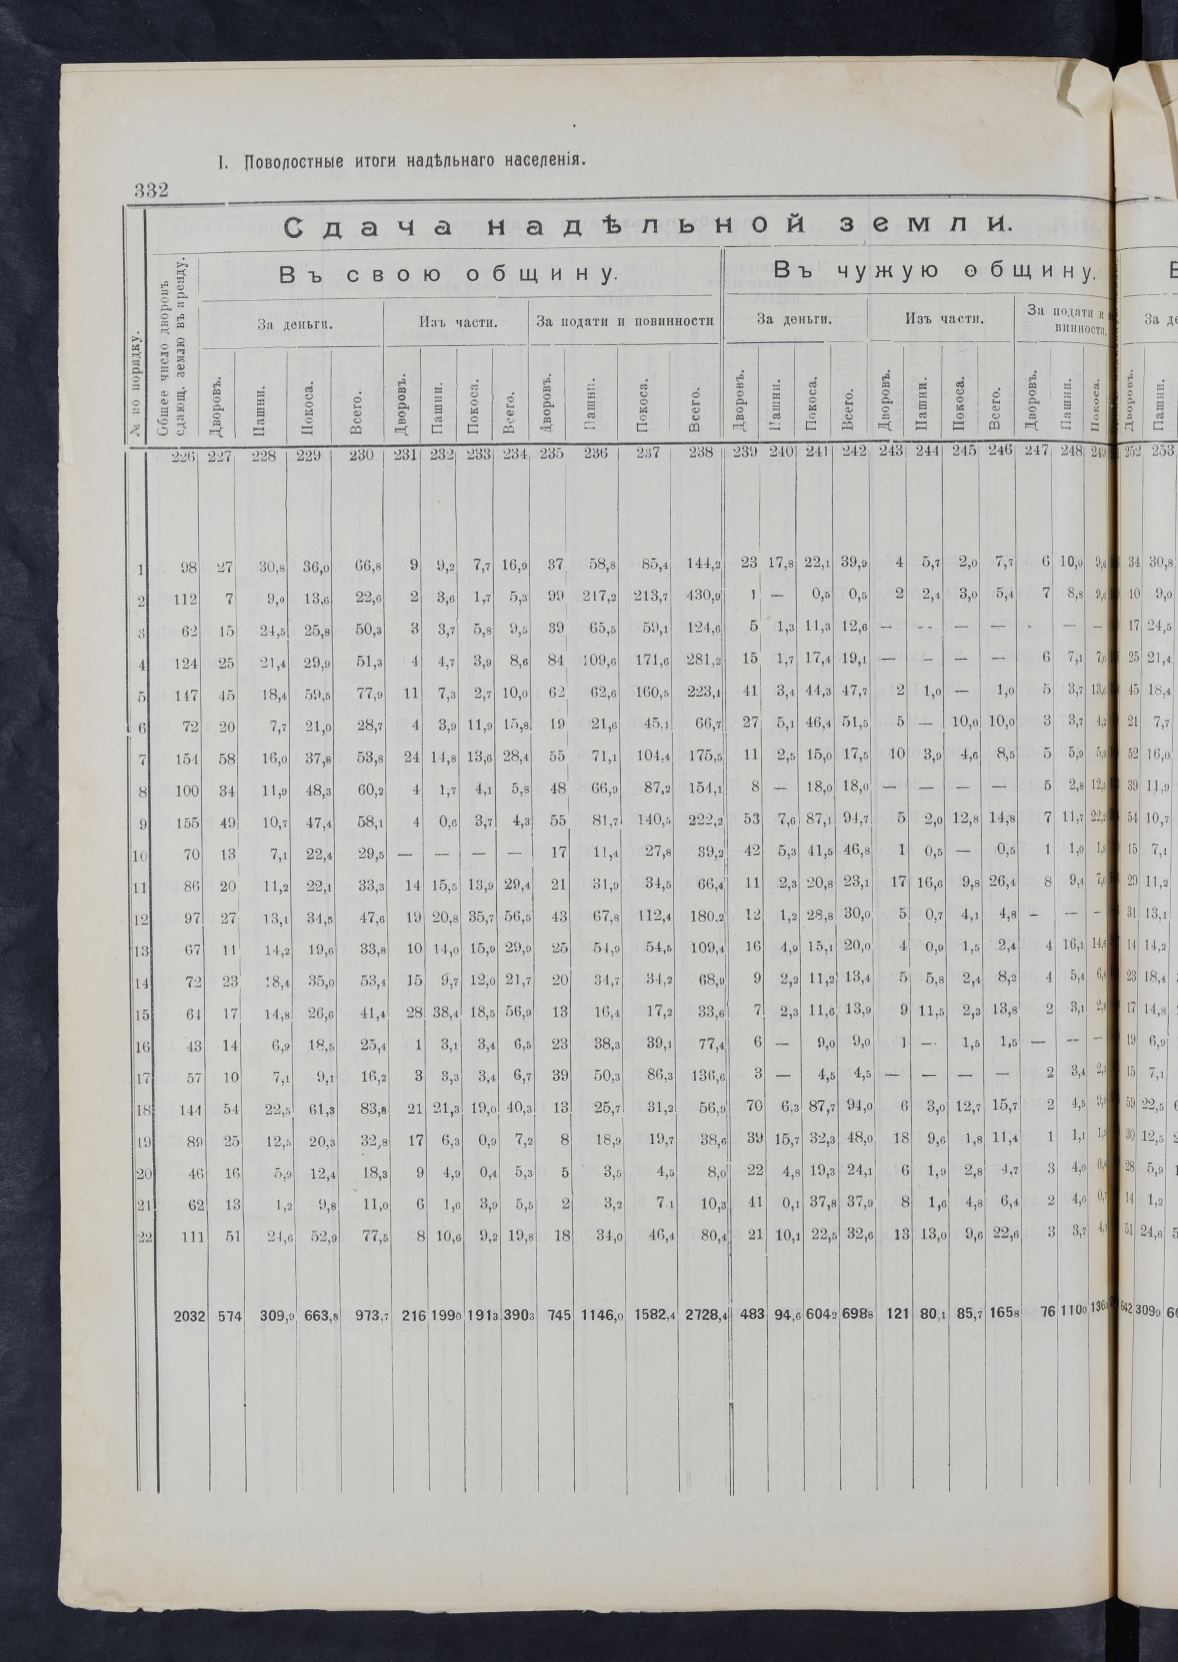 I. Поволостные итоги надѣльнаго населенія.
332
Сдача надѣльной земли.
Въ свою общину. Въ чужую общину.
№ по порядку. Общее число дворовъ сдающ. землю въ аренду. За деньги. Изъ части. За подати и повинности За деньги. Изъ части. За подати и винности.
Дворовъ. Пашни. Покоса. Всего. Дворовъ. Пашни. Покоса. Всего. Дворовъ. Пашни. Покоса. Всего. Дворовъ. Пашни. Покоса. Всего. Дворовъ. Пашни. Покоса. Всего. Дворовъ. Пашни. Покоса. Дворовъ. Пашни.
226 227 228 229 230 231 232 233 234 235 236 237 238 239 240 241 242 243 244 245 246 247 248 249 252 253
1 98 27 30,8 36,0 66,8 9 9,2 7,7 16,9 37 58,8 85,4 144,2 23 17,8 22,1 39,9 4 5,7 2,0 7,7 6 10,0 34 30,8
2 112 7 9,0 13,6 22,6 2 3,6 1,7 5,3 99 217,2 213,7 430,9 1 — 0,5 0,5 2 2,4 3,0 5,4 7 8,8 10 9,0
3 62 15 24,5 25,8 50,3 3 3,7 5,8 9,5 39 65,5 59,1 124,6 5 1,3 11,3 12,6 — — — — — — 17 24,5
4 124 25 21,4 29,9 51,3 4 4,7 3,9 8,6 84 109,6 171,6 281,2 15 1,7 17,4 19,1 — — — — 6 7,1 25 21,4
5 147 45 18,4 59,5 77,9 11 7,3 2,7 10,0 62 62,6 160,5 223,1 41 3,4 44,3 47,7 2 1,0 — 1,0 5 3,7 45 18,4
6 72 20 7,7 21,0 28,7 4 3,9 11,9 15,8 19 21,6 45,1 66,7 27 5,1 46,4 51,5 5 — 10,0 10,0 3 3,7 21 7,7
7 154 58 16,0 37,8 53,8 24 14,8 13,6 28,4 55 71,1 104,4 175,5 11 2,5 15,0 17,5 10 3,9 4,6 8,5 5 5,9 52 16,0
8 100 34 11,9 48,3 60,2 4 1,7 4,1 5,8 48 66,9 87,2 154,1 8 — 18,0 18,0 — — — — 5 2,8 39 11,9
9 155 49 10,7 47,4 58,1 4 0,6 3,7 4,3 55 81,7 140,5 222,2 53 7,6 87,1 94,7 5 2,0 12,8 14,8 7 11,7 54 10,7
10 70 13 7,1 22,4 29,5 — — — — 17 11,4 27,8 39,2 42 5,3 41,5 46,8 1 0,5 — 0,5 1 1,0 15 7,1
11 86 20 11,2 22,1 33,3 14 15,5 13,9 29,4 21 31,9 34,5 66,4 11 2,3 20,8 23,1 17 16,6 9,8 26,4 8 9,4 29 11,2
12 97 27 13,1 34,5 47,6 19 20,8 35,7 56,5 43 67,8 112,4 180,2 12 1,2 28,8 30,0 5 0,7 4,1 4,8 — — — 31 13,1
13 67 11 14,2 19,6 33,8 10 14,0 15,9 29,9 25 54,9 54,5 109,4 16 4,9 15,1 20,0 4 0,9 1,5 2,4 4 16,1 14 14,2
14 72 23 18,4 35,0 53,4 15 9,7 12,0 21,7 20 34,7 34,2 68,9 9 2,2 11,2 13,4 5 5,8 2,4 8,2 4 5,4 23 18,4
15 64 17 14,8 26,6 41,4 28 38,4 18,5 56,9 13 16,4 17,2 33,6 7 2,3 11,6 13,9 9 11,5 2,3 13,8 2 3,1 17 14,8
16 43 14 6,9 18,5 25,4 1 3,1 3,4 6,5 23 38,3 39,1 77,4 6 — 9,0 9,0 1 — 1,5 1,5 — — — 19 6,9
17 57 10 7,1 9,1 16,2 3 3,3 3,4 6,7 39 50,3 86,3 136,6 3 — 4,5 4,5 — — — — 2 3,4 15 7,1
18 144 54 22,5 61,3 83,8 21 21,3 19,0 40,3 13 25,7 31,2 56,9 70 6,3 87,7 94,0 6 3,0 12,7 15,7 2 4,5 59 22,5
19 89 25 12,5 20,3 32,8 17 6,3 0,9 7,2 8 18,9 19,7 38,6 39 15,7 32,3 48,0 18 9,6 1,8 11,4 1 1,1 30 12,5
20 46 16 5,9 12,4 18,3 9 4,9 0,4 5,3 5 3,5 4,5 8,0 22 4,8 19,3 24,1 6 1,9 2,8 4,7 3 4,0 28 5,9
21 62 13 1,2 9,8 11,0 6 1,6 3,9 5,5 2 3,2 7,1 10,3 41 0,1 37,8 37,9 8 1,6 4,8 6,4 2 4,6 14 1,2
22 111 51 24,6 52,9 77,5 8 10,6 9,2 19,8 18 34,0 46,4 80,4 21 10,1 22,5 32,6 13 13,0 9,6 22,6 3 3,7 51 24,6
2032 574 309,9 663,8 973,7 216 1990 1913 3903 745 1146,0 1582,4 2728,4 483 94,6 6042 6988 121 80,1 85,7 1658 76 1100 642 3099